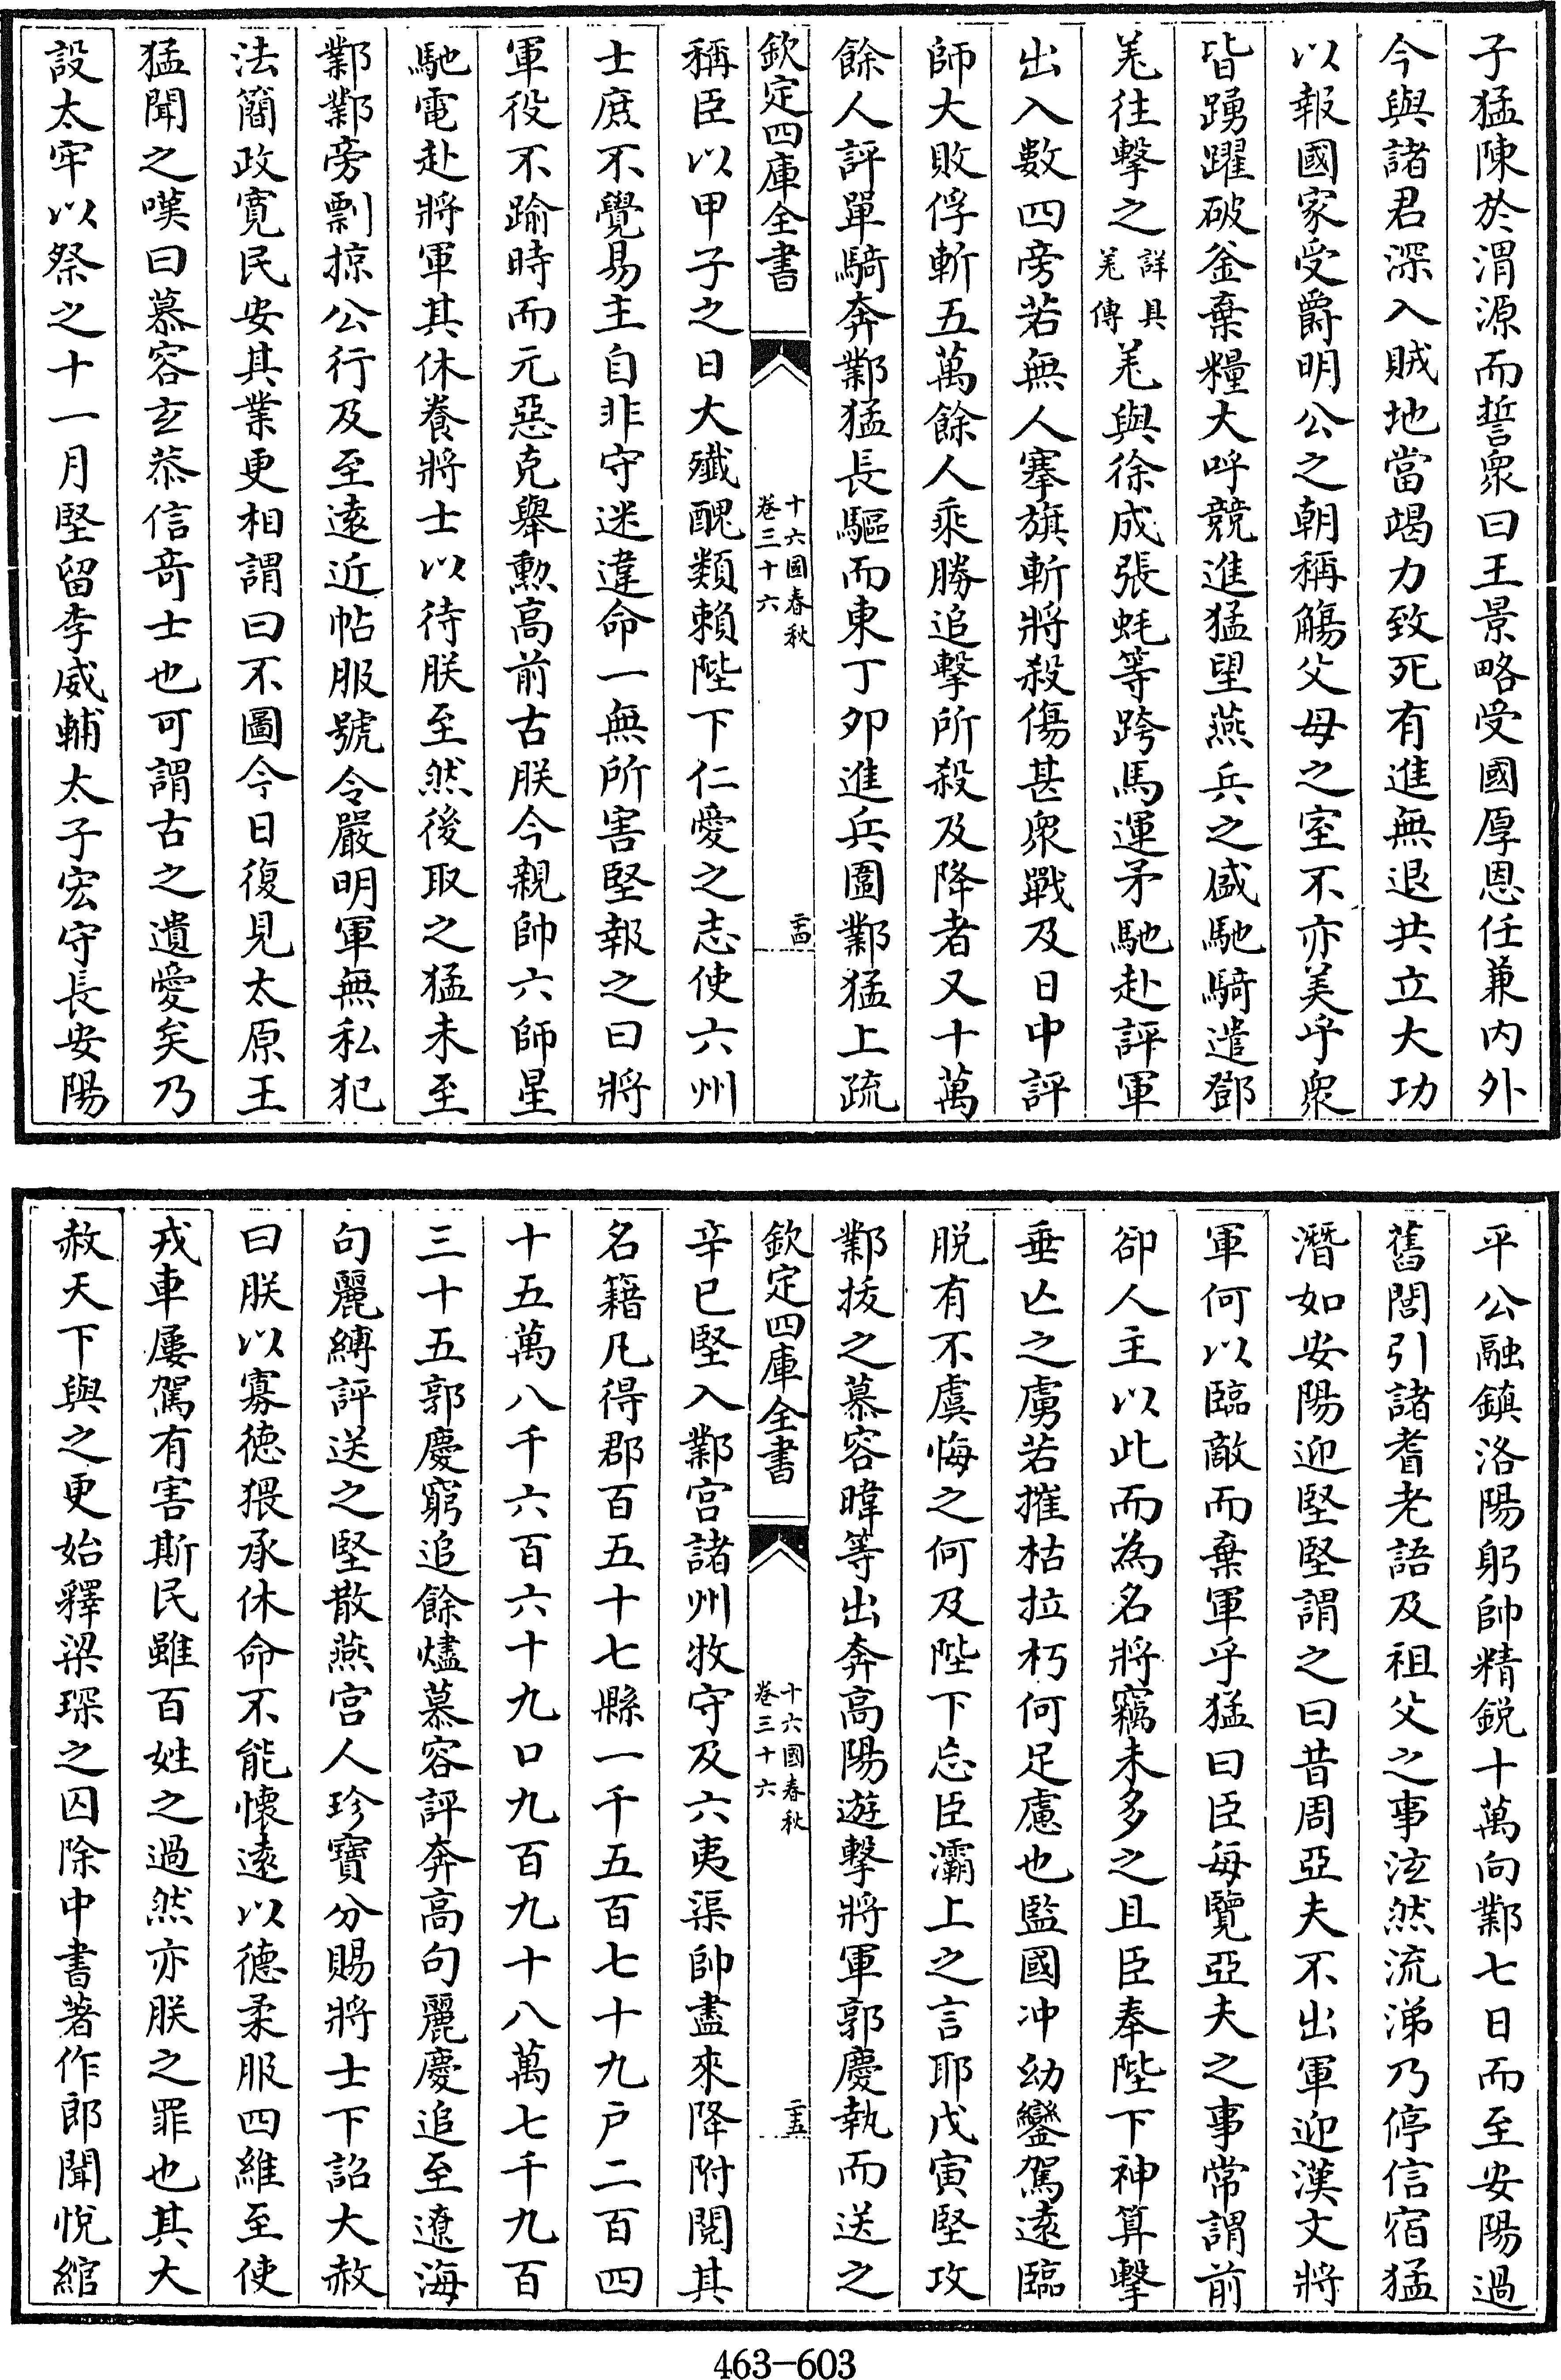 子猛陳於渭源而誓衆曰王景略受國厚恩任兼内外
今與諸君深入賊地當竭力致死有進無退共立大功
以報國家受爵明公之朝稱觴父母之室不亦美乎衆
皆踴躍破釜棄糧大呼競進猛望燕兵之盛馳騎遣鄧
羌往擊之詳具羌傳羌與徐成張蚝等跨馬運矛馳赴評軍
出入數四旁若無人搴旗斬將殺傷甚衆戰及日中評
師大敗俘斬五萬餘人乘勝追擊所殺及降者又十萬
餘人評單騎奔鄴猛長驅而東丁卯進兵圍鄴猛上疏
欽定四庫全書
十六國春秋
卷三十六
二十四
稱臣以甲子之日大殲醜類賴陛下仁愛之志使六州
士庶不覺易主自非守迷違命一無所害堅報之曰將
軍役不踰時而元惡克舉勲高前古朕今親帥六師星
馳電赴將軍其休養將士以待朕至然後取之猛未至
鄴鄴旁剽掠公行及至遠近帖服號令嚴明軍無私犯
法簡政寛民安其業更相謂曰不圖今日復見太原王
猛聞之嘆曰慕容玄恭信奇士也可謂古之遺愛矣乃
設太牢以祭之十一月堅留李威輔太子宏守長安陽
平公融鎮洛陽躬帥精鋭十萬向鄴七日而至安陽過
舊閭引諸耆老語及祖父之事泫然流涕乃停信宿猛
潛如安陽迎堅堅謂之曰昔周亞夫不出軍迎漢文將
軍何以臨敵而棄軍乎猛曰臣每覽亞夫之事常謂前
卻人主以此而為名將竊未多之且臣奉陛下神算擊
垂亾之虜若摧枯拉朽何足慮也監國冲幼鑾駕遠臨
脱有不虞悔之何及陛下忘臣灞上之言耶戊寅堅攻
鄴拔之慕容暐等出奔高陽遊擊將軍郭慶執而送之
欽定四庫全書
十六國春秋
卷三十六
二十五
辛已堅入鄴宫諸州牧守及六夷渠帥盡來降附閱其
名籍凡得郡百五十七縣一千五百七十九户二百四
十五萬八千六百六十九口九百九十八萬七千九百
三十五郭慶窮追餘燼慕容評奔高句麗慶追至遼海
句麗縛評送之堅散燕宫人珍寶分賜將士下詔大赦
曰朕以寡徳猥承休命不能懷遠以德柔服四維至使
戎車屢駕有害斯民雖百姓之過然亦朕之罪也其大
赦天下與之更始釋梁琛之囚除中書著作郎聞悅綰
463-603